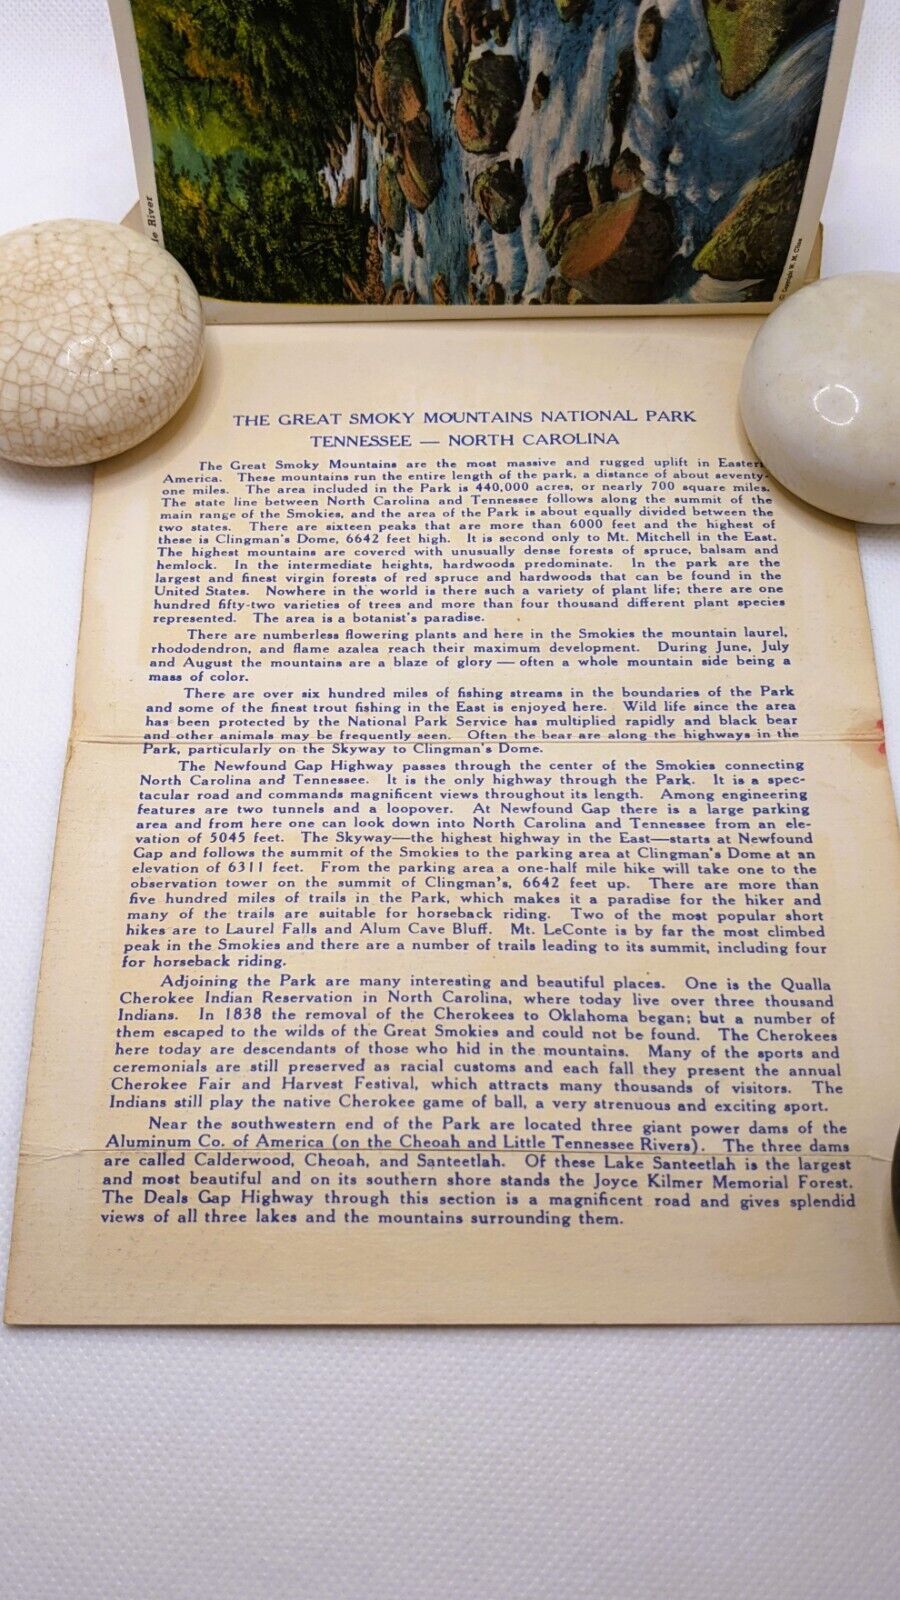 le River
© Copyright W. M. Cline
THE GREAT SMOKY MOUNTAINS NATIONAL PARK
TENNESSEE — NORTH CAROLINA
The Great Smoky Mountains are the most massive and rugged uplift in Eastern
America. These mountains run the entire length of the park, a distance of about seventy-
one miles. The area included in the Park is 440,000 acres, or nearly 700 square miles.
The state line between North Carolina and Tennessee follows along the summit of the
main range of the Smokies, and the area of the Park is about equally divided between the
two states. There are sixteen peaks that are more than 6000 feet and the highest of
these is Clingman's Dome, 6642 feet high. It is second only to Mt. Mitchell in the East.
The highest mountains are covered with unusually dense forests of spruce, balsam and
hemlock. In the intermediate heights, hardwoods predominate. In the park are the
largest and finest virgin forests of red spruce and hardwoods that can be found in the
United States. Nowhere in the world is there such a variety of plant life; there are one
hundred fifty-two varieties of trees and more than four thousand different plant species
represented. The area is a botanist's paradise.
There are numberless flowering plants and here in the Smokies the mountain laurel,
rhododendron, and flame azalea reach their maximum development. During June, July
and August the mountains are a blaze of glory — often a whole mountain side being a
mass of color.
There are over six hundred miles of fishing streams in the boundaries of the Park
and some of the finest trout fishing in the East is enjoyed here. Wild life since the area
has been protected by the National Park Service has multiplied rapidly and black bear
and other animals may be frequently seen. Often the bear are along the highways in the
Park, particularly on the Skyway to Clingman's Dome.
The Newfound Gap Highway passes through the center of the Smokies connecting
North Carolina and Tennessee. It is the only highway through the Park. It is a spec-
tacular road and commands magnificent views throughout its length. Among engineering
features are two tunnels and a loopover. At Newfound Gap there is a large parking
area and from here one can look down into North Carolina and Tennessee from an ele-
vation of 5045 feet. The Skyway—the highest highway in the East—starts at Newfound
Gap and follows the summit of the Smokies to the parking area at Clingman's Dome at an
elevation of 6311 feet. From the parking area a one-half mile hike will take one to the
observation tower on the summit of Clingman's, 6642 feet up. There are more than
five hundred miles of trails in the Park, which makes it a paradise for the hiker and
many of the trails are suitable for horseback riding. Two of the most popular short
hikes are to Laurel Falls and Alum Cave Bluff. Mt. LeConte is by far the most climbed
peak in the Smokies and there are a number of trails leading to its summit, including four
for horseback riding.
Adjoining the Park are many interesting and beautiful places. One is the Qualla
Cherokee Indian Reservation in North Carolina, where today live over three thousand
Indians. In 1838 the removal of the Cherokees to Oklahoma began; but a number of
them escaped to the wilds of the Great Smokies and could not be found. The Cherokees
here today are descendants of those who hid in the mountains. Many of the sports and
ceremonials are still preserved as racial customs and each fall they present the annual
Cherokee Fair and Harvest Festival, which attracts many thousands of visitors. The
Indians still play the native Cherokee game of ball, a very strenuous and exciting sport.
Near the southwestern end of the Park are located three giant power dams of the
Aluminum Co. of America (on the Cheoah and Little Tennessee Rivers). The three dams
are called Calderwood, Cheoah, and Santeetlah. Of these Lake Santeetlah is the largest
and most beautiful and on its southern shore stands the Joyce Kilmer Memorial Forest.
The Deals Gap Highway through this section is a magnificent road and gives splendid
views of all three lakes and the mountains surrounding them.